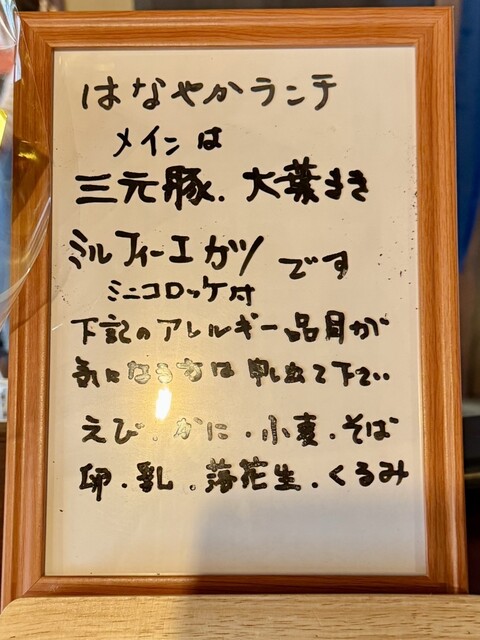 はなやかランチ
メインは
三元豚．大葉まき
ミルフィーエカツ です
ミニコロッケ付
下記のアレルギー品目が
気になる方は申し出て下さい
えび．かに．小麦．そば
卵．乳．落花生．くるみ